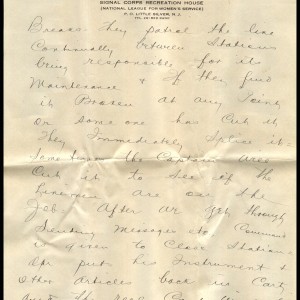 SIGNAL CORPS RECREATION HOUSE
(NATIONAL LEAGUE FOR WOMEN'S SERVICE)
P. O. LITTLE SILVER, N. J.
Breaks they patrol the line
Continually between Stations
being responsible for its
Maintenance & if they find
it Broken at any Point
or some one has Cut it
They Immediately Splice it
Sometimes the Captains
Cut it to See if the
Linemen are on the
Job. After we get through
Sending Messages etc Command
is given to Close Station
put his Instrument &
Other articles back in Cart
and the reel